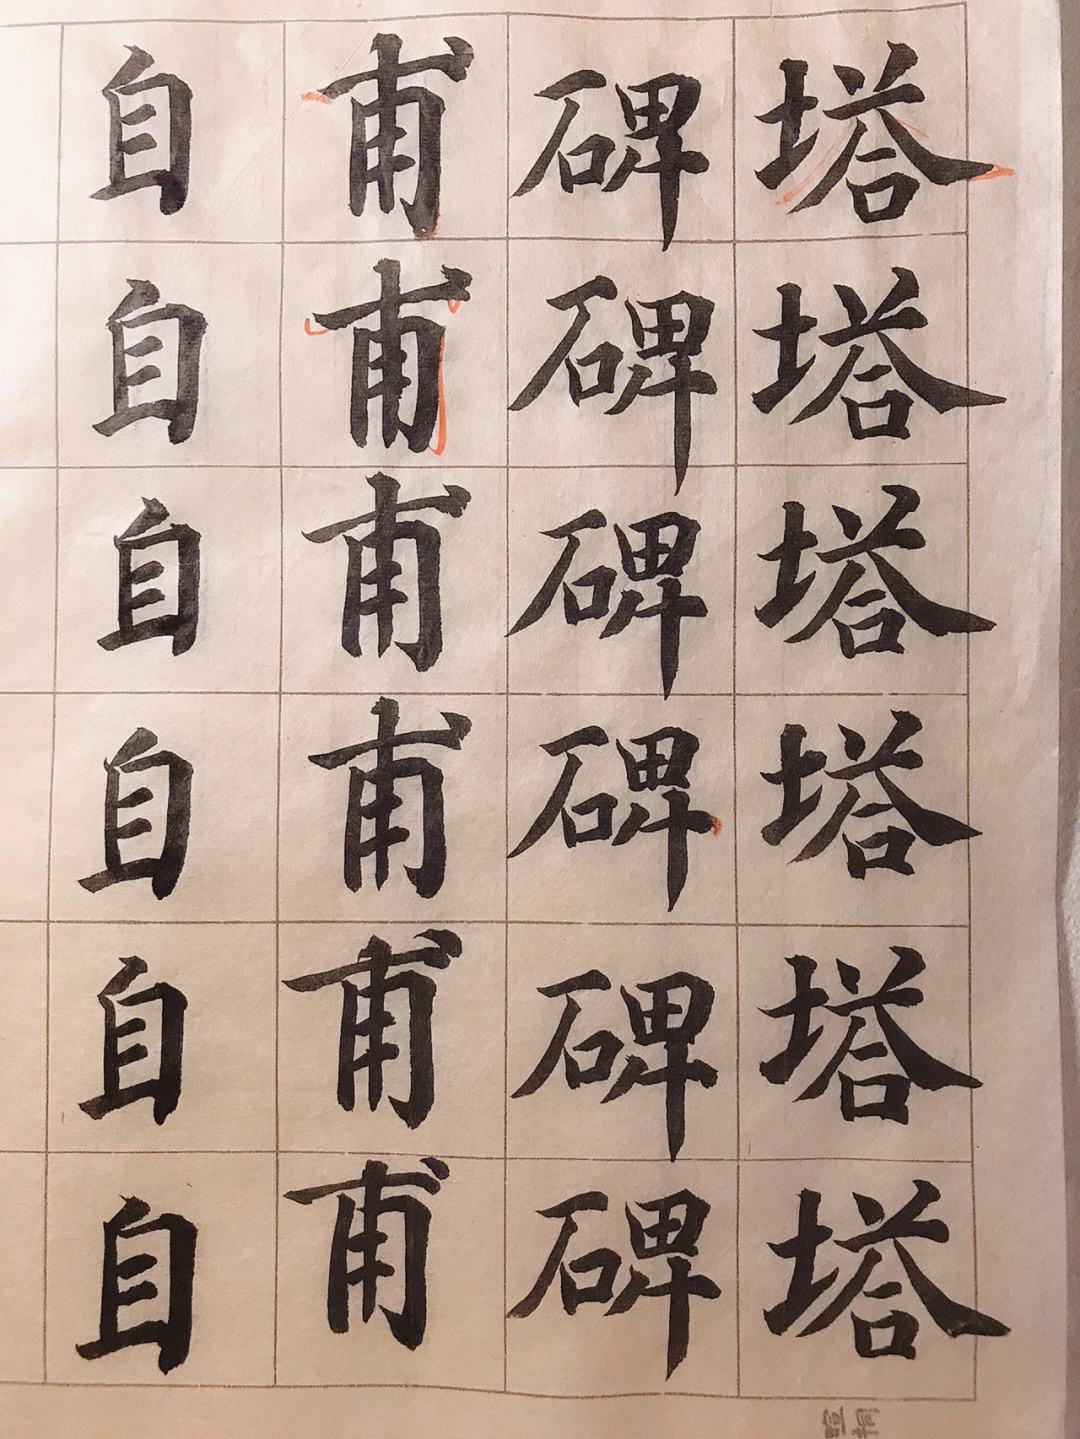 塔塔塔塔塔塔
碑碑碑碑碑碑
甫甫甫甫甫甫
自自自自自自